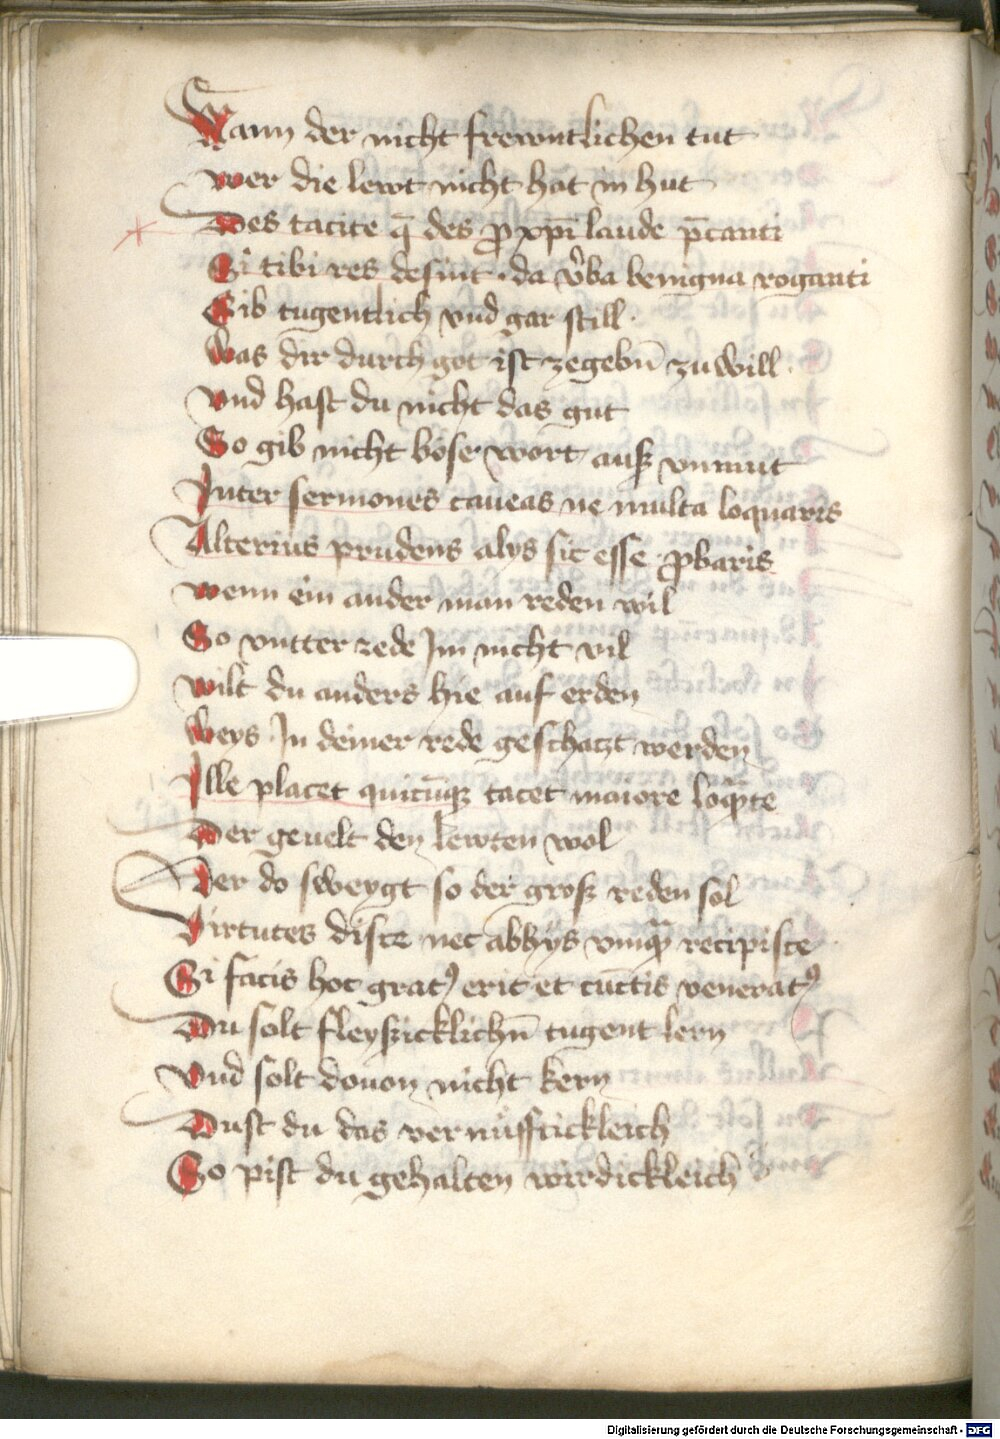 Wann der nicht frewntlichen tut
wer die lewt nicht hat in hut
Des tacite q̄ des ꝓ xp̄i laude p̄canti
Si tibi res desint · da v̓ba benigna roganti
Gib tugentlich vnd gar still ·
Was dir durch got ist zegebn̄ zu will ·
vnd hast du nicht das gut
So gib nicht böse wort auß vnmut
Inter sermones caueas ne multa loquaris
Alterius prudens alys sic esse ꝓbaris
wenn ein ander man reden wil
So vntter rede Im nicht vil
wilt du anders hie auf erden
Weys In deiner rede geschatzt werden
Ille placet quicūqꝫ tacet maiore loqn̄te
Der geuelt den lewten wol
Der do sweygt so der groß reden sol
Virtutes disce nec abhys vmqᷓ recipisce
Si facis hoc gratꝰ erit et cūctis veneratꝰ
Du solt fleyssicklichn̄ tugent lern
Vnd solt douon nicht kern
Dust du das vernufftickleich
So pist du gehalten wirdickleich
Digitalisierung gefördert durch die Deutsche Forschungsgemeinschaft - DFG